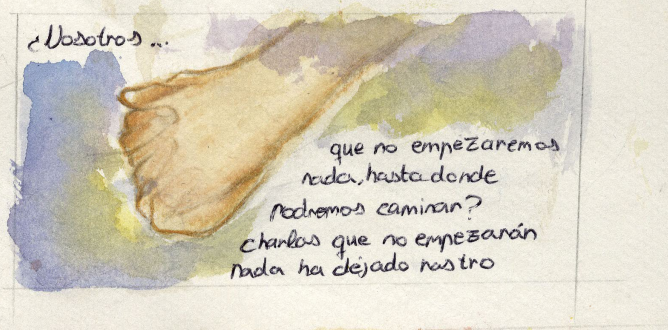 ¿Nosotros...
que no empezaremos
nada, hasta donde
podremos caminar?
charlas que no empezarán
nada ha dejado rastro